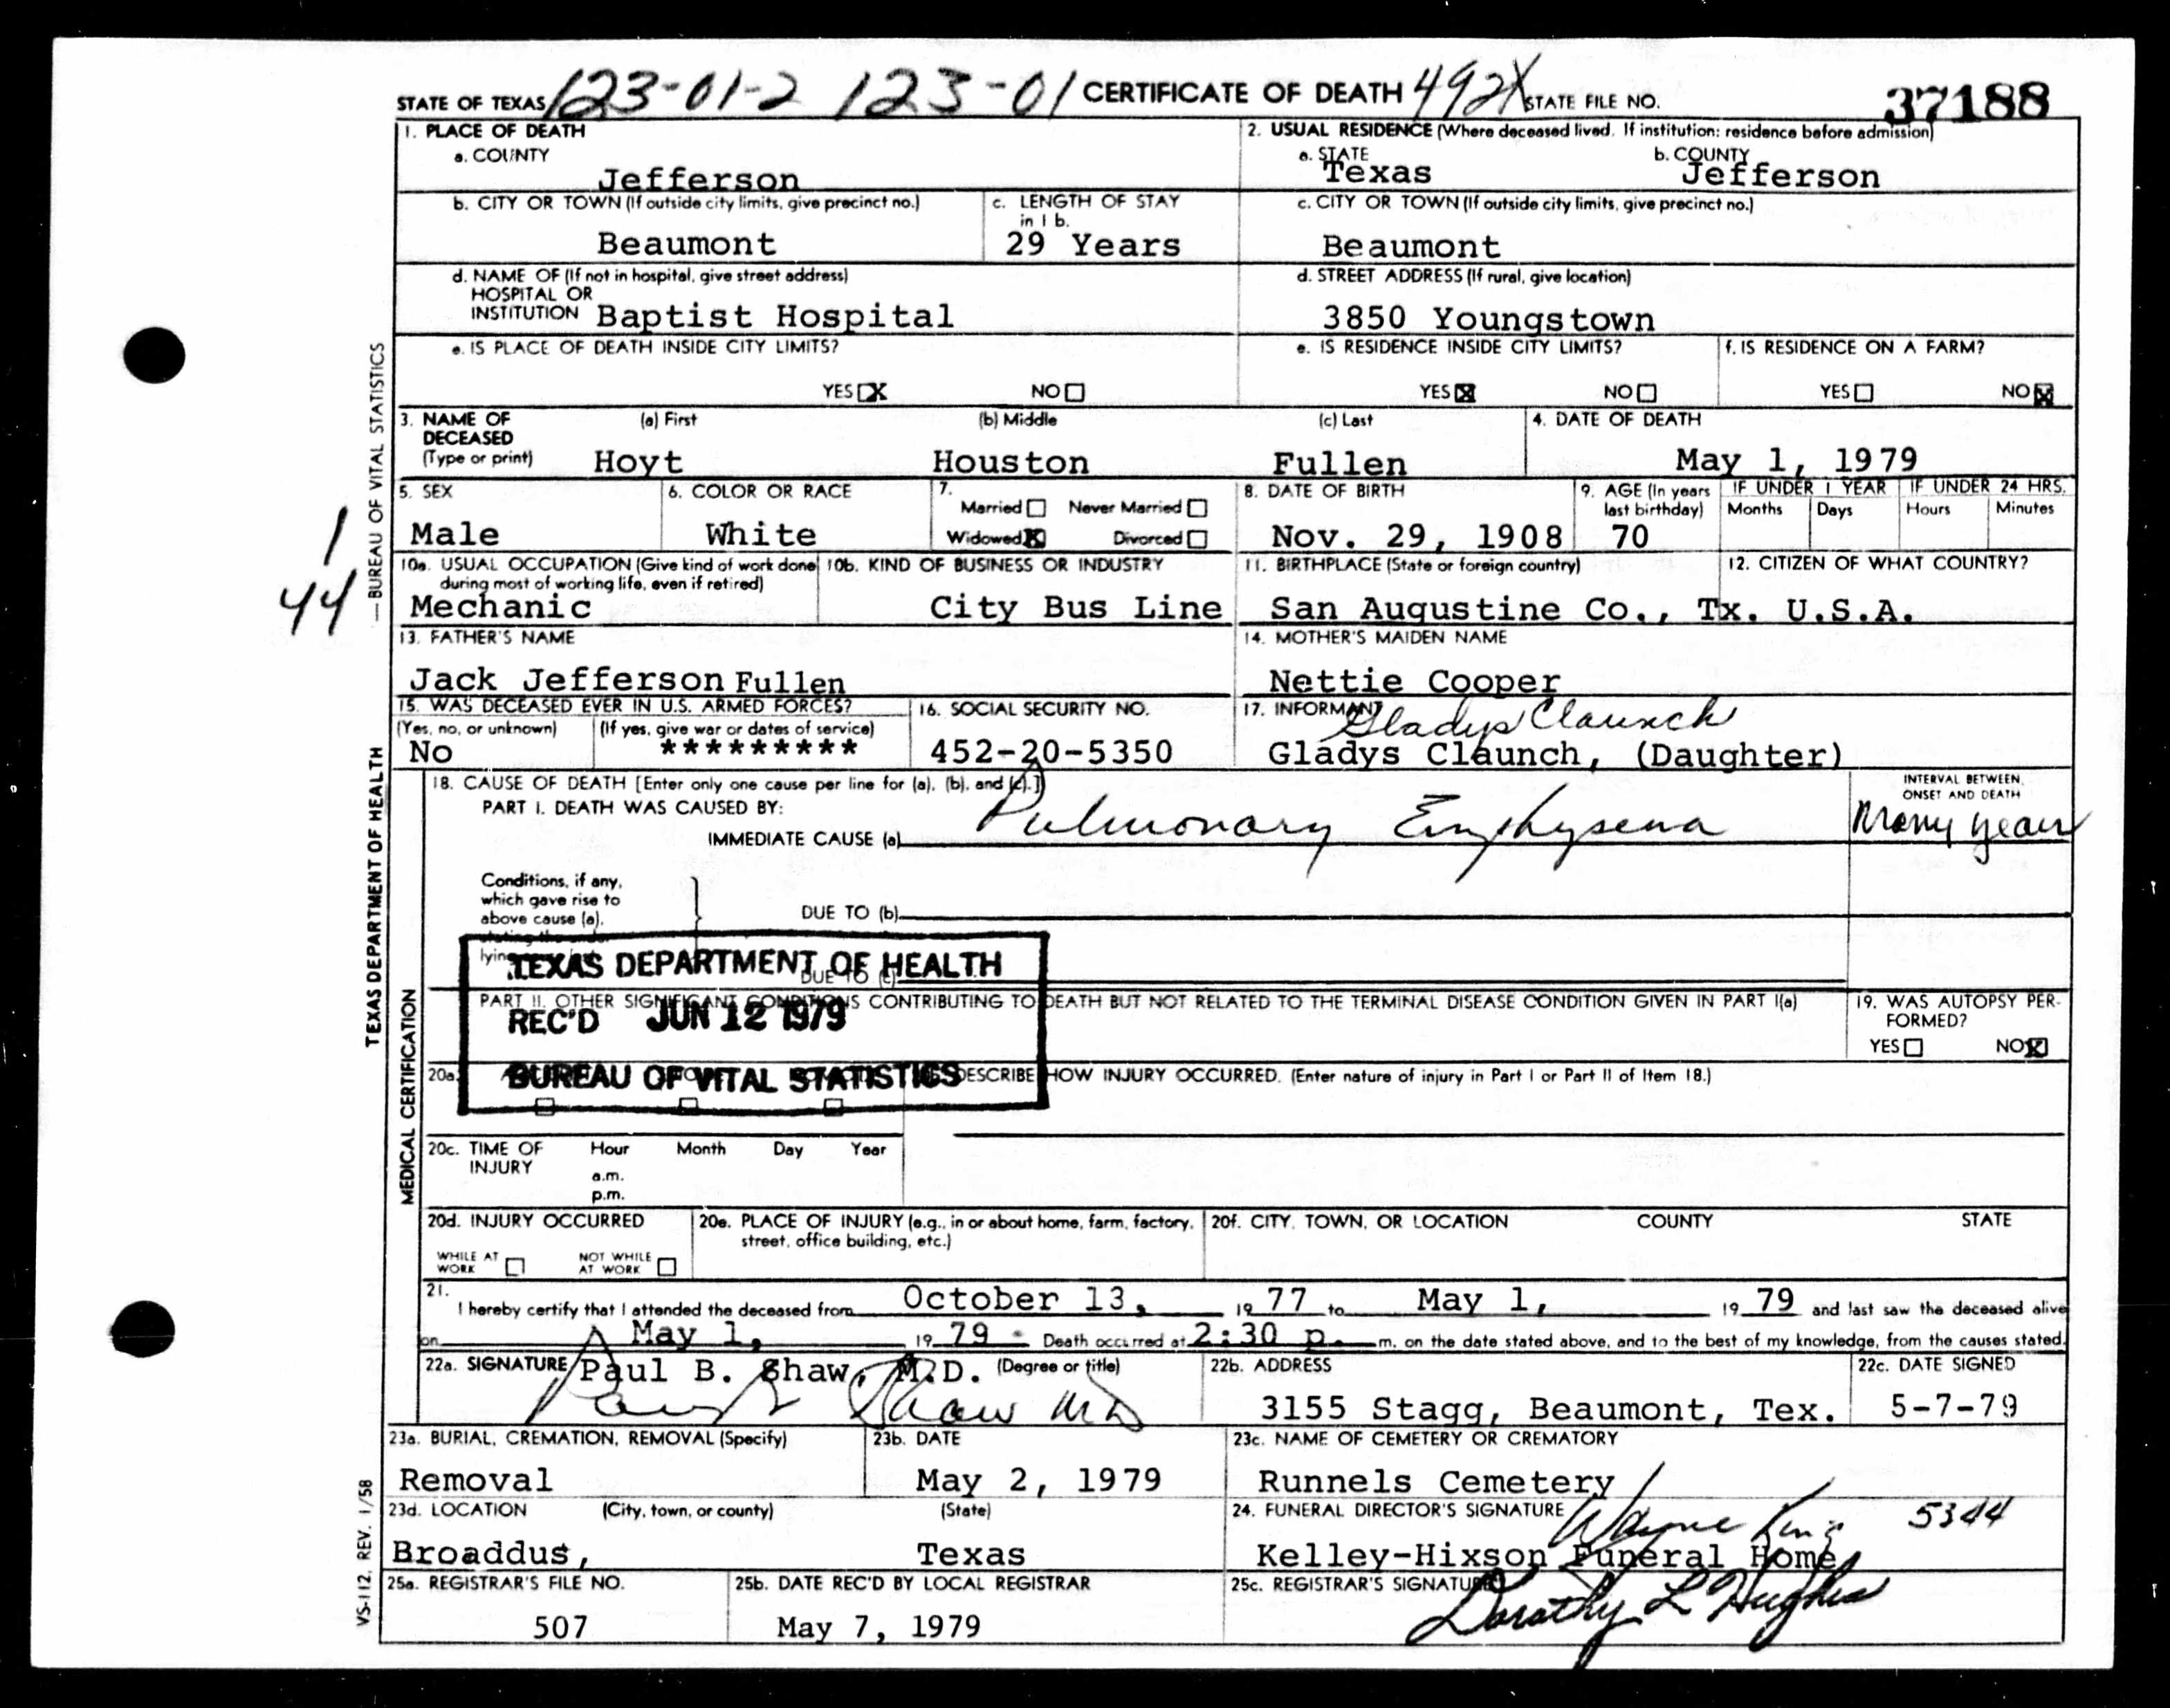 STATE OF TEXAS 123-01-2 123-01 CERTIFICATE OF DEATH 492X STATE FILE NO. 37188
1. PLACE OF DEATH
a. COUNTY
Jefferson
2. USUAL RESIDENCE (Where deceased lived. If institution: residence before admission)
a. STATE
Texas
b. COUNTY
Jefferson
b. CITY OR TOWN (If outside city limits, give precinct no.)
Beaumont
c. LENGTH OF STAY
in 1 b.
29 Years
c. CITY OR TOWN (If outside city limits, give precinct no.)
Beaumont
d. NAME OF (If not in hospital, give street address)
HOSPITAL OR
INSTITUTION Baptist Hospital
d. STREET ADDRESS (If rural, give location)
3850 Youngstown
e. IS PLACE OF DEATH INSIDE CITY LIMITS?
YES X NO
e. IS RESIDENCE INSIDE CITY LIMITS?
YES X NO
f. IS RESIDENCE ON A FARM?
YES NO X
3. NAME OF
DECEASED
(Type or print)
(a) First (b) Middle (c) Last
Hoyt Houston Fullen
4. DATE OF DEATH
May 1, 1979
5. SEX
Male
6. COLOR OR RACE
White
7.
Married Never Married
Widowed X Divorced
8. DATE OF BIRTH
Nov. 29, 1908
9. AGE (In years
last birthday)
70
IF UNDER 1 YEAR
Months Days
IF UNDER 24 HRS.
Hours Minutes
10a. USUAL OCCUPATION (Give kind of work done
during most of working life, even if retired)
Mechanic
10b. KIND OF BUSINESS OR INDUSTRY
City Bus Line
11. BIRTHPLACE (State or foreign country)
San Augustine Co., Tx.
12. CITIZEN OF WHAT COUNTRY?
U.S.A.
13. FATHER'S NAME
Jack Jefferson Fullen
14. MOTHER'S MAIDEN NAME
Nettie Cooper
15. WAS DECEASED EVER IN U.S. ARMED FORCES?
(Yes, no, or unknown) (If yes, give war or dates of service)
No *********
16. SOCIAL SECURITY NO.
452-20-5350
17. INFORMANT Gladys Claunch
Gladys Claunch, (Daughter)
18. CAUSE OF DEATH [Enter only one cause per line for (a), (b), and (c).]
PART I. DEATH WAS CAUSED BY:
IMMEDIATE CAUSE (a) Pulmonary Emphysema
INTERVAL BETWEEN
ONSET AND DEATH
Many years
Conditions, if any,
which gave rise to
above cause (a),
stating the under-
lying
DUE TO (b)
DUE TO (c)
TEXAS DEPARTMENT OF HEALTH
REC'D JUN 12 1979
BUREAU OF VITAL STATISTICS
PART II. OTHER SIGNIFICANT CONDITIONS CONTRIBUTING TO DEATH BUT NOT RELATED TO THE TERMINAL DISEASE CONDITION GIVEN IN PART I(a)
19. WAS AUTOPSY PER-
FORMED?
YES NO X
20a.
DESCRIBE HOW INJURY OCCURRED. (Enter nature of injury in Part I or Part II of Item 18.)
20c. TIME OF
INJURY
Hour Month Day Year
a.m.
p.m.
20d. INJURY OCCURRED
WHILE AT
WORK
NOT WHILE
AT WORK
20e. PLACE OF INJURY (e.g., in or about home, farm, factory,
street, office building, etc.)
20f. CITY, TOWN, OR LOCATION COUNTY STATE
21.
I hereby certify that I attended the deceased from October 13, 19 77 to May 1, 19 79 and last saw the deceased alive
on May 1, 19 79 - Death occurred at 2:30 p. m. on the date stated above, and to the best of my knowledge, from the causes stated.
22a. SIGNATURE Paul B. Shaw, M.D. (Degree or title)
Paul B Shaw MD
22b. ADDRESS
3155 Stagg, Beaumont, Tex.
22c. DATE SIGNED
5-7-79
23a. BURIAL, CREMATION, REMOVAL (Specify)
Removal
23b. DATE
May 2, 1979
23c. NAME OF CEMETERY OR CREMATORY
Runnels Cemetery
23d. LOCATION (City, town, or county) (State)
Broaddus, Texas
24. FUNERAL DIRECTOR'S SIGNATURE Wayne King 5344
Kelley-Hixson Funeral Home
25a. REGISTRAR'S FILE NO.
507
25b. DATE REC'D BY LOCAL REGISTRAR
May 7, 1979
25c. REGISTRAR'S SIGNATURE
Dorothy L Hughes
1
44
TEXAS DEPARTMENT OF HEALTH — BUREAU OF VITAL STATISTICS
MEDICAL CERTIFICATION
VS-112, REV. 1/58